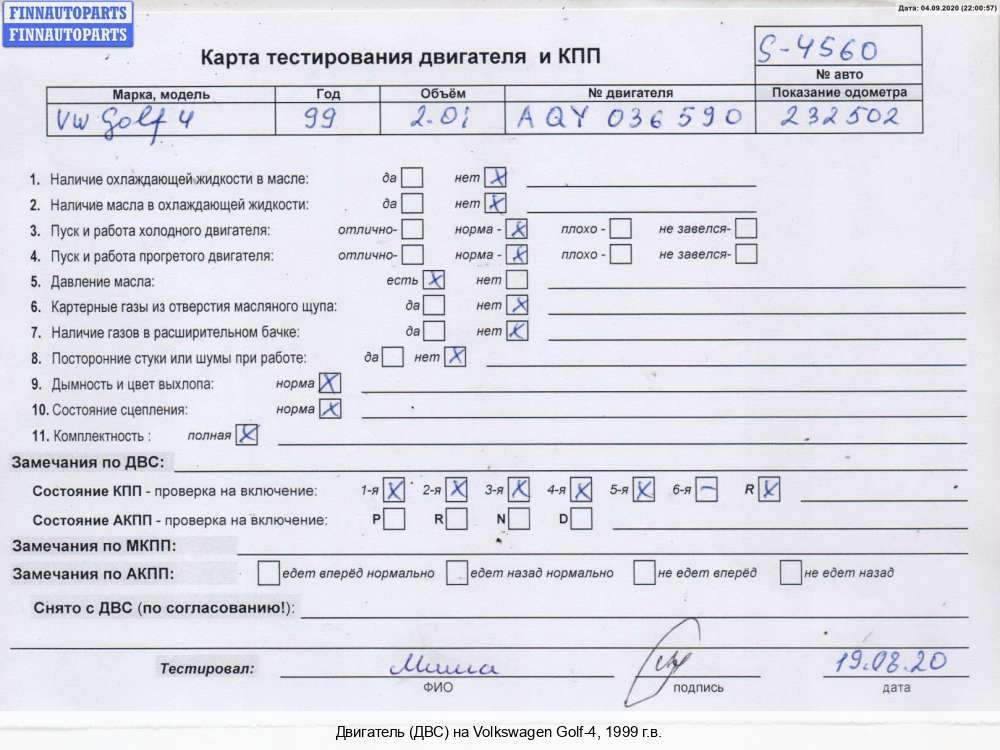 FINNAUTOPARTS
FINNAUTOPARTS
Дата: 04.09.2020 (22:00:57)
Карта тестирования двигателя и КПП
S-4560
№ авто
Марка, модель Год Объём № двигателя Показание одометра
VW Golf 4 99 2.0i AQY 036590 232502
1. Наличие охлаждающей жидкости в масле: да нет X
2. Наличие масла в охлаждающей жидкости: да нет X
3. Пуск и работа холодного двигателя: отлично- норма - X плохо - не завелся-
4. Пуск и работа прогретого двигателя: отлично- норма - X плохо - не завелся-
5. Давление масла: есть X нет
6. Картерные газы из отверстия масляного щупа: да нет X
7. Наличие газов в расширительном бачке: да нет X
8. Посторонние стуки или шумы при работе: да нет X
9. Дымность и цвет выхлопа: норма X
10. Состояние сцепления: норма X
11. Комплектность : полная X
Замечания по ДВС:
Состояние КПП - проверка на включение: 1-я X 2-я X 3-я X 4-я X 5-я X 6-я – R X
Состояние АКПП - проверка на включение: P R N D
Замечания по МКПП:
Замечания по АКПП: едет вперёд нормально едет назад нормально не едет вперёд не едет назад
Снято с ДВС (по согласованию!):
Тестировал: Миша 19.08.20
ФИО подпись дата
Двигатель (ДВС) на Volkswagen Golf-4, 1999 г.в.